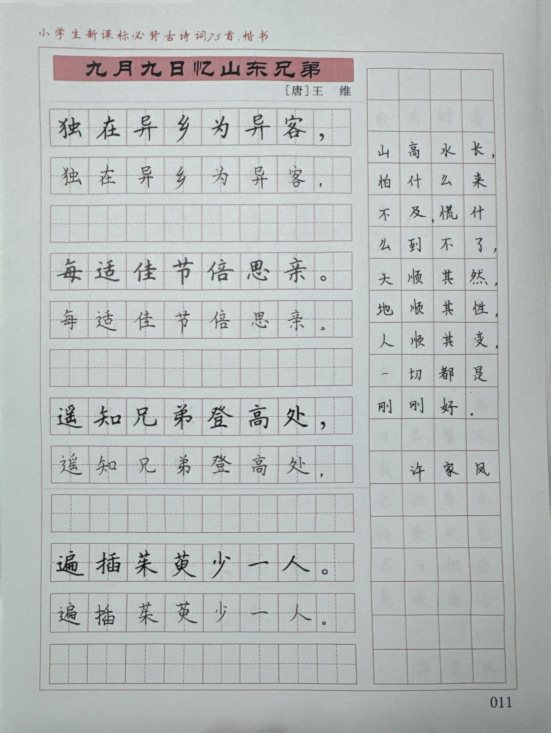 小学生新课标必背古诗词75首·楷书
九月九日忆山东兄弟
[唐]王 维
独在异乡为异客，
独在异乡为异客，
每适佳节倍思亲。
每适佳节倍思亲。
遥知兄弟登高处，
遥知兄弟登高处，
遍插茱萸少一人。
遍插茱萸少一人。
山高水长，
怕什么来
不及，慌什
么到不了，
天顺其然，
地顺其性，
人顺其变，
一切都是
刚刚好．
许家凤
011